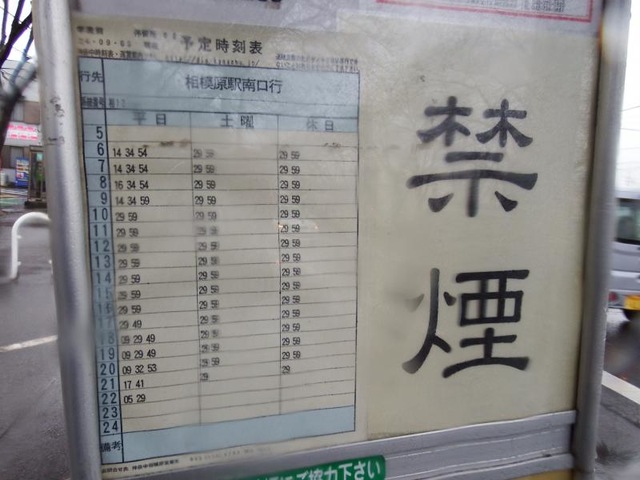 予定時刻表
行先 相模原駅南口行
平日 土曜 休日
5
6 14 34 54 29 59 29 59
7 14 34 54 29 59 29 59
8 16 34 54 29 59 29 59
9 14 34 59 29 59 29 59
10 29 59 29 59 29 59
11 29 59 29 59 29 59
12 29 59 29 59 29 59
13 29 59 29 59 29 59
14 29 59 29 59 29 59
15 29 59 29 59 29 59
16 29 59 29 59 29 59
17 29 49 29 59 29 59
18 09 29 49 29 59 29 59
19 09 29 49 29 59 29 59
20 09 32 53 29 59 29 59
21 17 41 29 29
22 05 29
23
24
備考
禁
煙
にご協力下さい